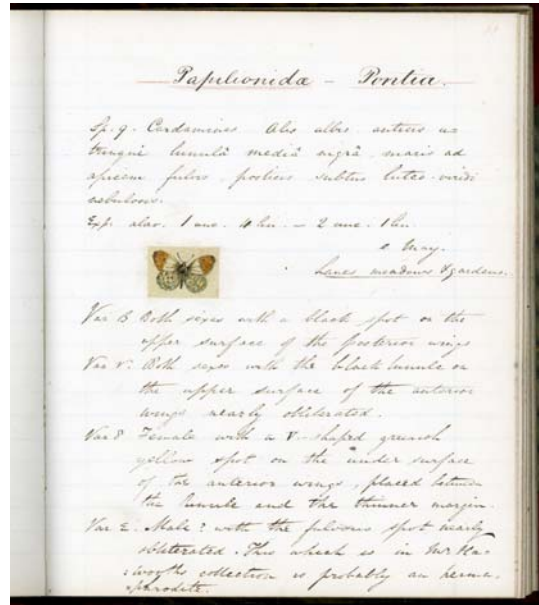 Papilionidæ — Pontia.
Sp. 9. Cardamines Alis albis anticis u=
trinque lunulâ mediâ nigrâ, maris ad
apicem fulvis, posticis subtus luteo-viridi
nebulosis.
Exp. alar. 1 unc. 4 lin. — 2 unc. 1 lin.
May.
Lanes meadows & gardens.
Var B Both sexes with a black spot on the
upper surface of the posterior wings
Var γ. Both sexes with the black lunule on
the upper surface of the anterior
wings nearly obliterated.
Var δ Female with a V-shaped greenish
yellow spot on the under surface
of the anterior wings, placed between
the lunule and the thinner margin.
Var Ɛ. Male? with the fulvous spot nearly
obliterated. This which is in Mr Ha=
=worths collection is probably an herma=
=phrodite.